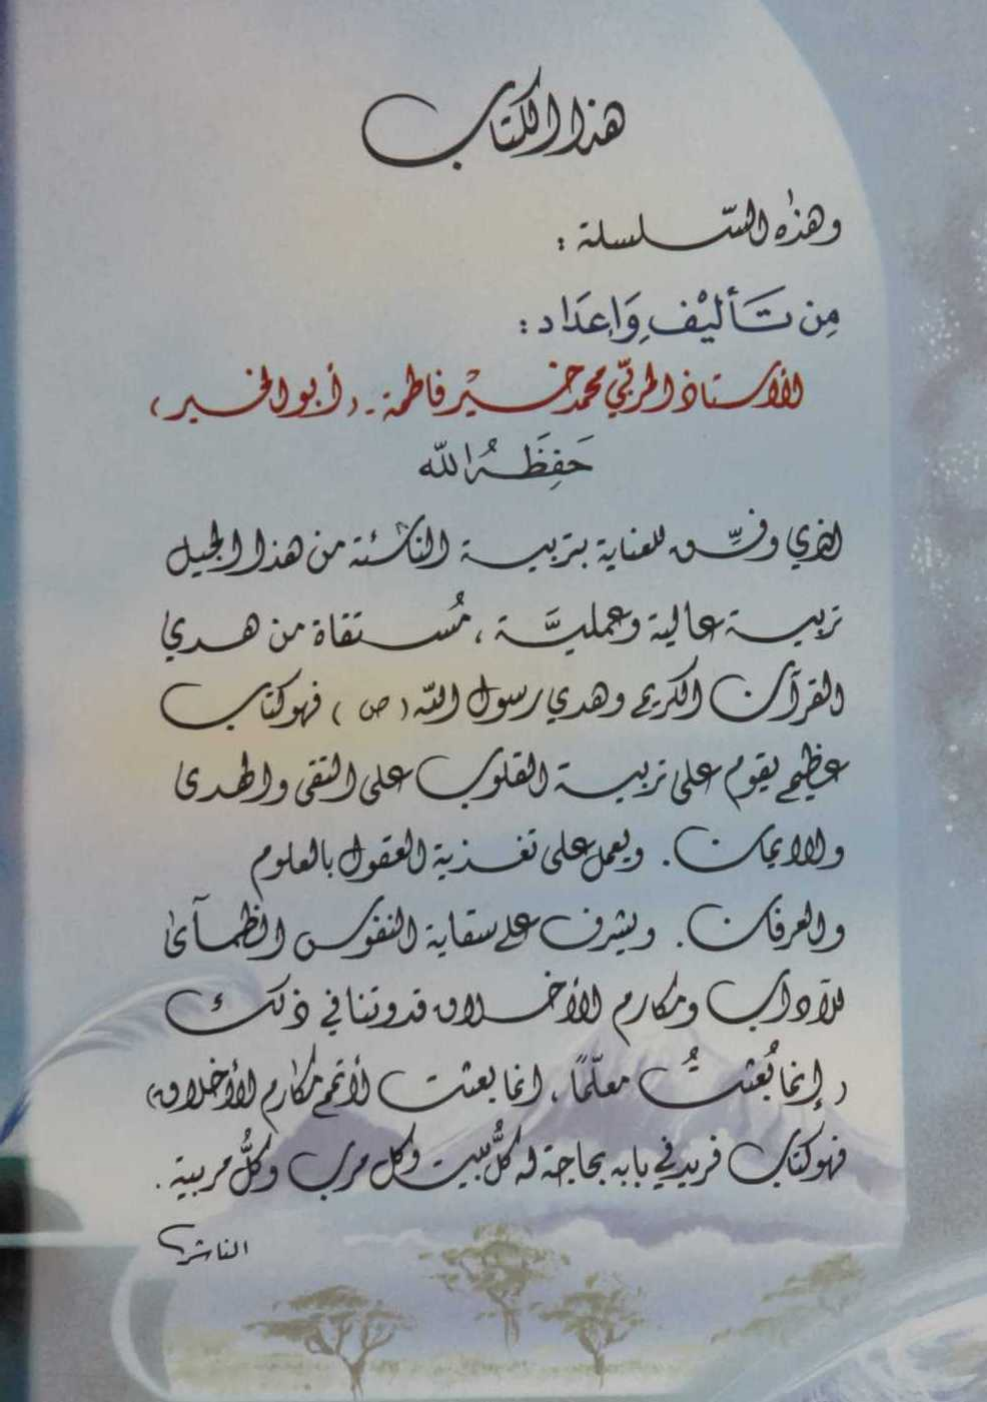 هذا الكتاب
وهذه السّلسلة :
مِن تَأليْف وَإعدَاد :
الأستاذ المربّي محمد خيْر فاطمة - (أبو الخير)
حَفِظَهُ الله
الذي وفِّق للعناية بتربية الناشئة من هذا الجيل
تربية عالية وعمليَّة ، مُستقاة من هدي
القرآن الكريم وهدي رسول الله ( ص ) فهو كتاب
عظيم يقوم على تربية القلوب على التقى والهدى
والايمان . ويعمل على تغذية العقول بالعلوم
والعرفان . ويشرف على سقاية النفوس الظمآى
للآداب ومكارم الأخلاق قدوتنا في ذلك
( إنما بُعثتُ معلّمًا ، انما بعثت لأتمم مكارم الأخلاق )
فهو كتاب فريد في بابه بحاجة له كلُّ بيت وكل مرب وكلُّ مربية .
الناشر